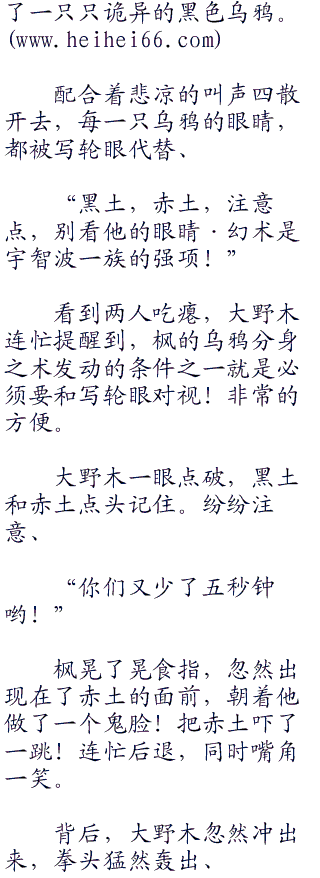 了一只只诡异的黑色乌鸦。
(www.heihei66.com)
配合着悲凉的叫声四散
开去，每一只乌鸦的眼睛，
都被写轮眼代替、
“黑土，赤土，注意
点，别看他的眼睛·幻术是
宇智波一族的强项！”
看到两人吃瘪，大野木
连忙提醒到，枫的乌鸦分身
之术发动的条件之一就是必
须要和写轮眼对视！非常的
方便。
大野木一眼点破，黑土
和赤土点头记住。纷纷注
意、
“你们又少了五秒钟
哟！”
枫晃了晃食指，忽然出
现在了赤土的面前，朝着他
做了一个鬼脸！把赤土吓了
一跳！连忙后退，同时嘴角
一笑。
背后，大野木忽然冲出
来，拳头猛然轰出、